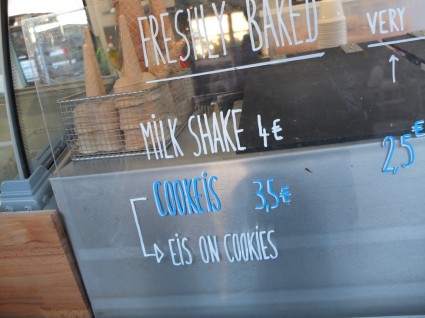 FRESHLY BAKED
VERY
MILK SHAKE 4€
2,5€
COOKEIS 3,5€
EIS ON COOKIES